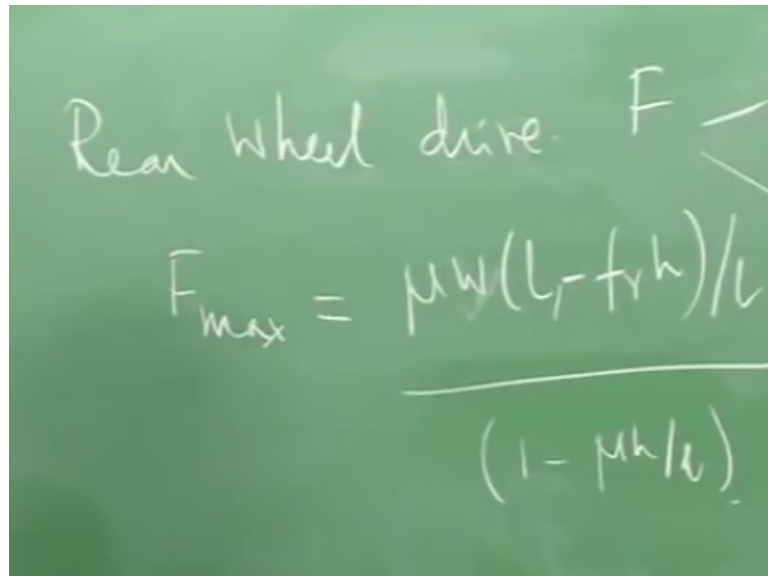 Rear Wheel drive. F <
F_max = μW(l₁ - f_r h)/L
(1 - μh/L)